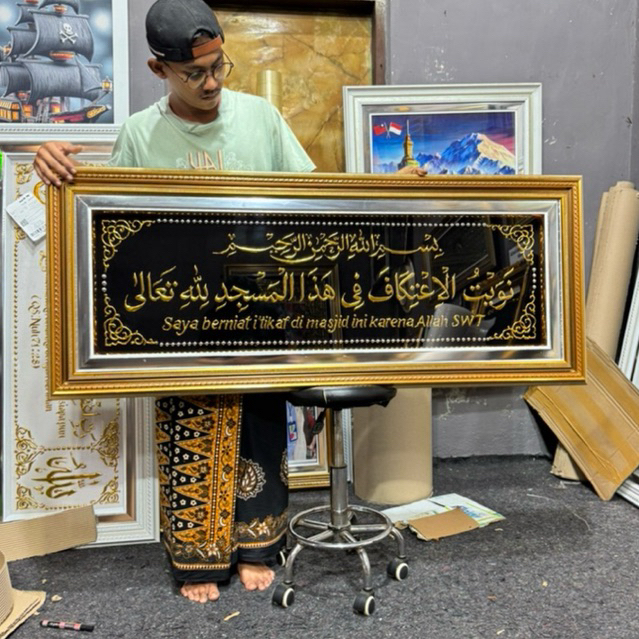 بِسْمِ اللهِ الرَّحْمٰنِ الرَّحِيْمِ
نَوَيْتُ الْاِعْتِكَافَ فِي هَذَا الْمَسْجِدِ لِلّٰهِ تَعَالٰى
Saya berniat i'tikaf di masjid ini karena Allah SWT